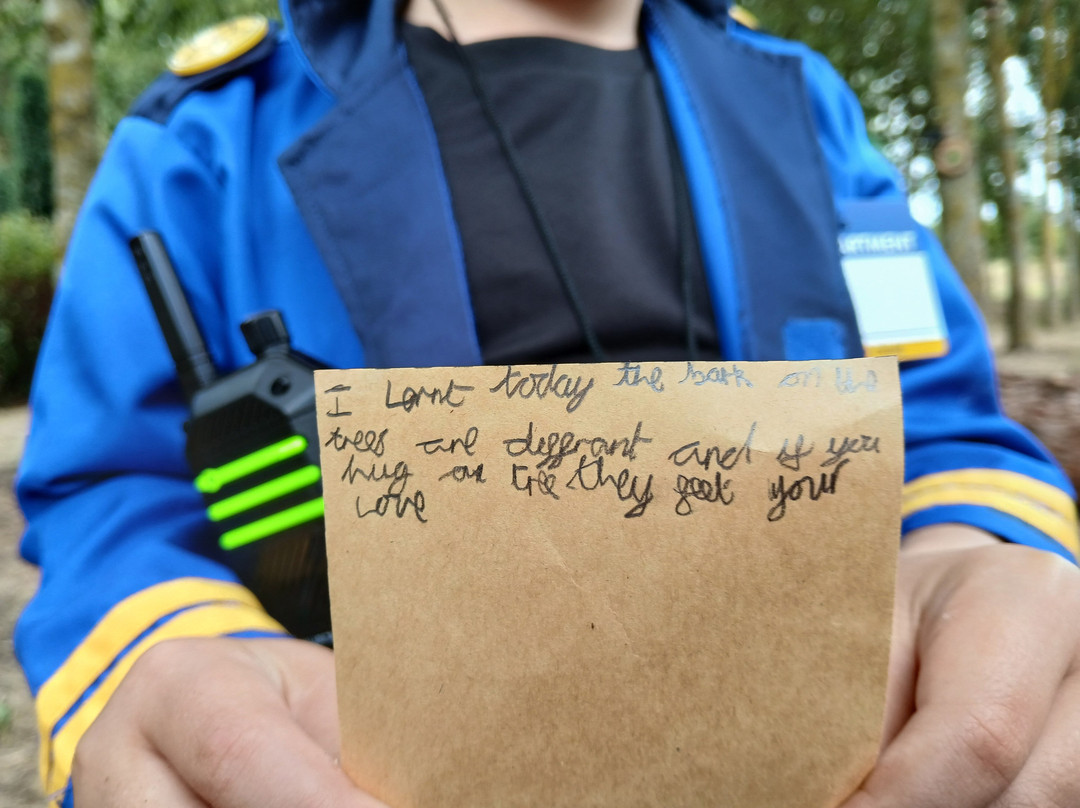 I Lornt today the bark on the
trees are diffrant and if you
hug an tree they feel your
Love
ARTMENT